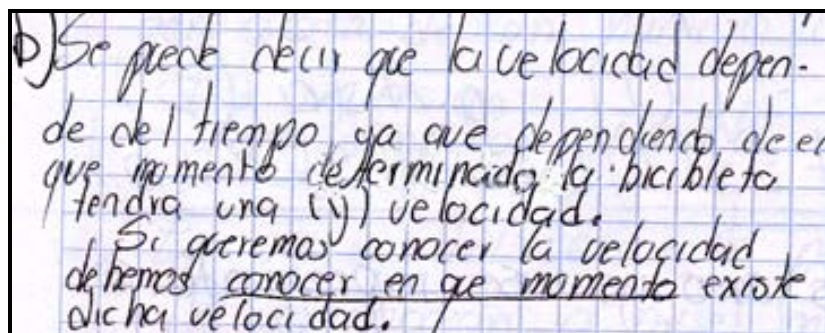 b) Se puede decir que la velocidad depen-
de del tiempo, ya que dependiendo de en
que momento determinado la bicibleta
tendra una (y) velocidad.
Si queremos conocer la velocidad
debemos conocer en que momento existe
dicha velocidad.